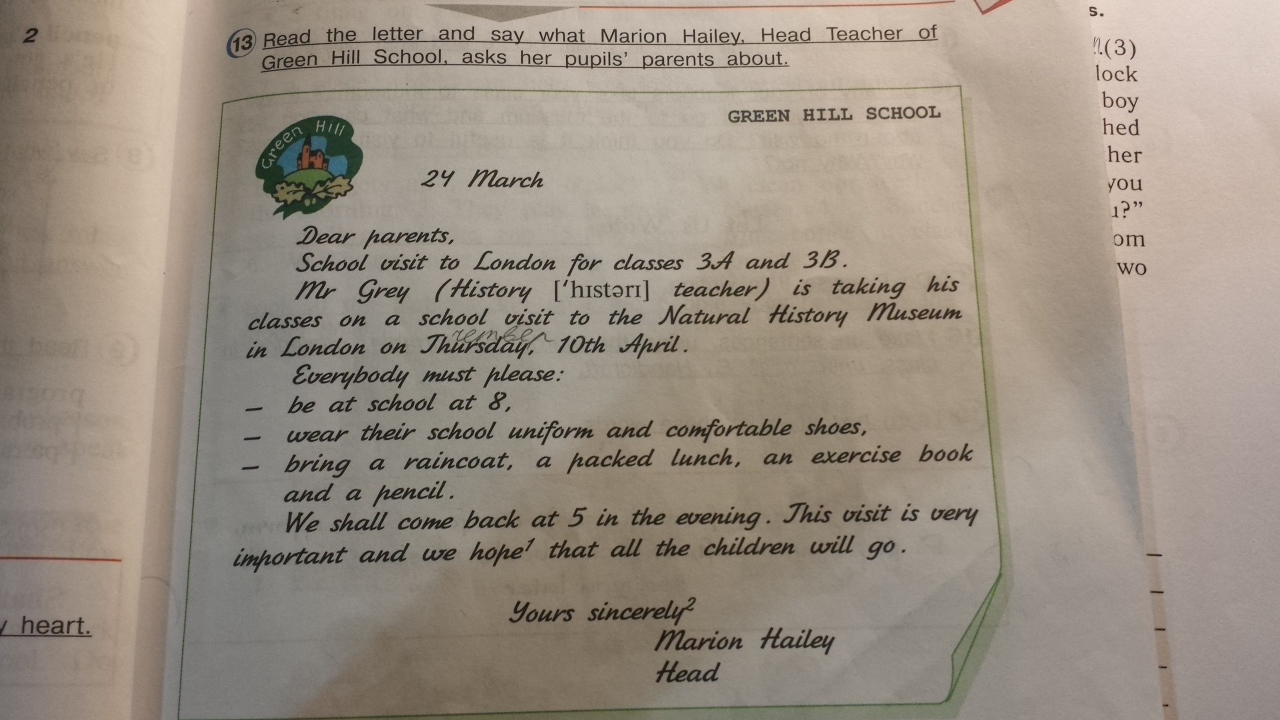 2
y heart.
13 Read the letter and say what Marion Hailey, Head Teacher of
Green Hill School, asks her pupils' parents about.
Green Hill
GREEN HILL SCHOOL
24 March
Dear parents,
School visit to London for classes 3A and 3B.
Mr Grey (History ['hɪstərɪ] teacher) is taking his
classes on a school visit to the Natural History Museum
in London on Thursday, 10th April.
Everybody must please:
— be at school at 8,
— wear their school uniform and comfortable shoes,
— bring a raincoat, a packed lunch, an exercise book
and a pencil.
We shall come back at 5 in the evening. This visit is very
important and we hope¹ that all the children will go.
Yours sincerely²
Marion Hailey
Head
s.
(3)
lock
boy
hed
her
you
?"
om
wo